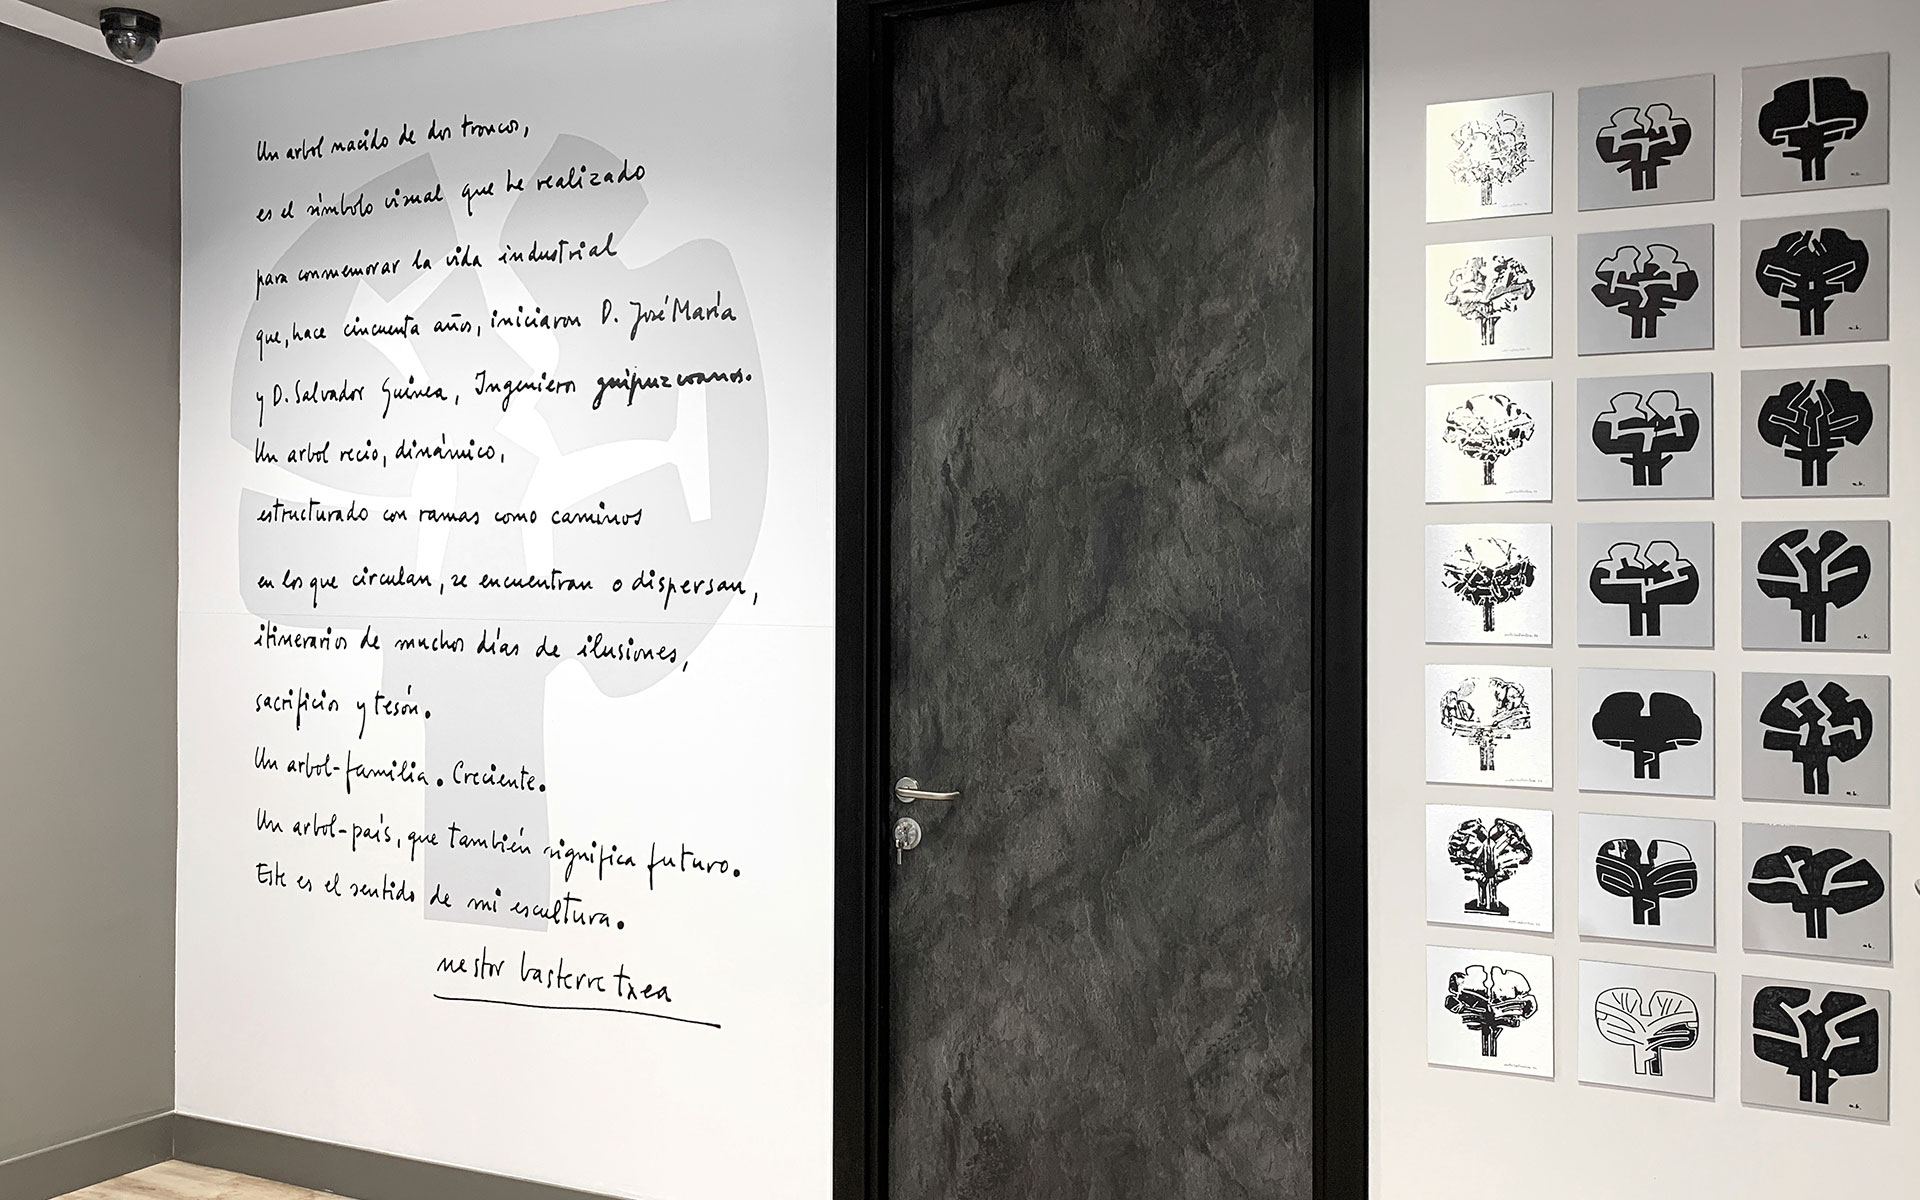 Un arbol nacido de dos troncos,
es el símbolo visual que he realizado
para conmemorar la vida industrial
que, hace cincuenta años, iniciaron D. José María
y D. Salvador Guinea, Ingenieros guipuzcoanos.
Un arbol recio, dinámico,
estructurado con ramas como caminos
en los que circulan, se encuentran o dispersan,
itinerarios de muchos días de ilusiones,
sacrificios y tesón.
Un arbol-familia. Creciente.
Un arbol-país, que también significa futuro.
Este es el sentido de mi escultura.
nestor basterretxea